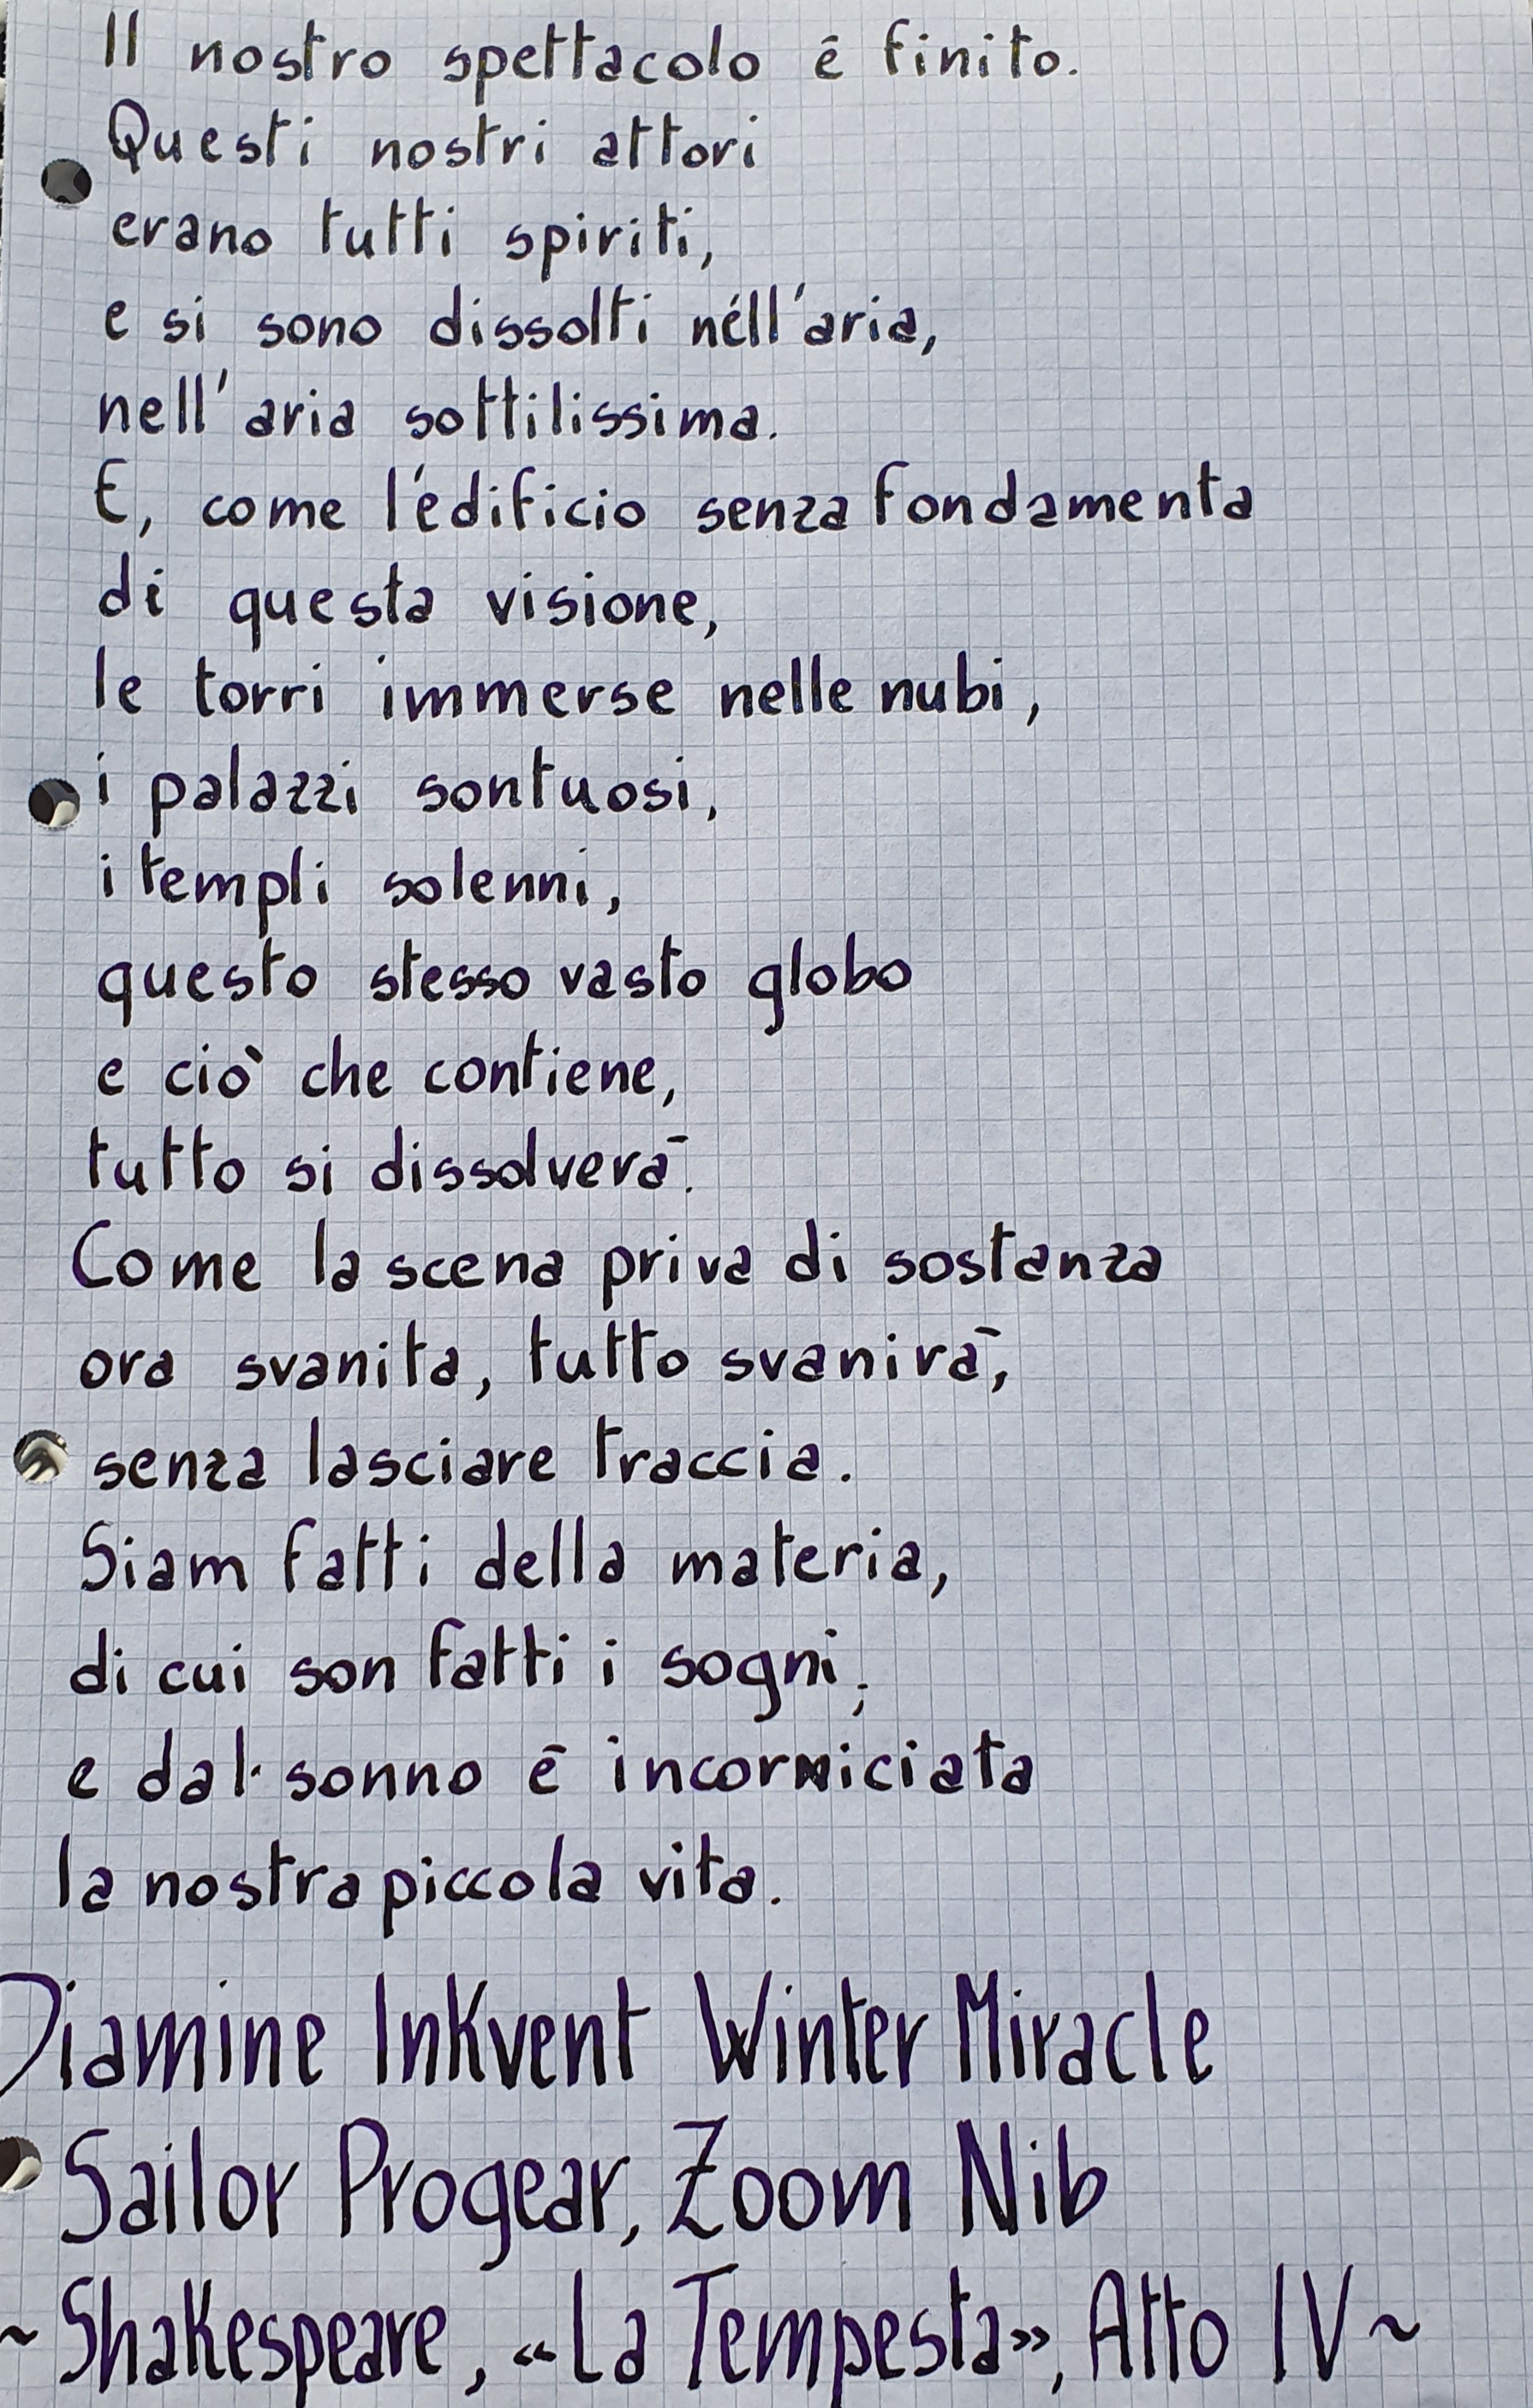 Il nostro spettacolo è finito.
Questi nostri attori
erano tutti spiriti,
e si sono dissolti nell'aria,
nell'aria sottilissima.
E, come l'edificio senza fondamenta
di questa visione,
le torri immerse nelle nubi,
i palazzi sontuosi,
i templi solenni,
questo stesso vasto globo
e ciò che contiene,
tutto si dissolverà.
Come la scena priva di sostanza
ora svanita, tutto svanirà,
senza lasciare traccia.
Siam fatti della materia,
di cui son fatti i sogni;
e dal sonno è incorniciata
la nostra piccola vita.
Diamine InKvent Winter Miracle
Sailor Progear, Zoom Nib
~Shakespeare, «La Tempesta», Atto IV~